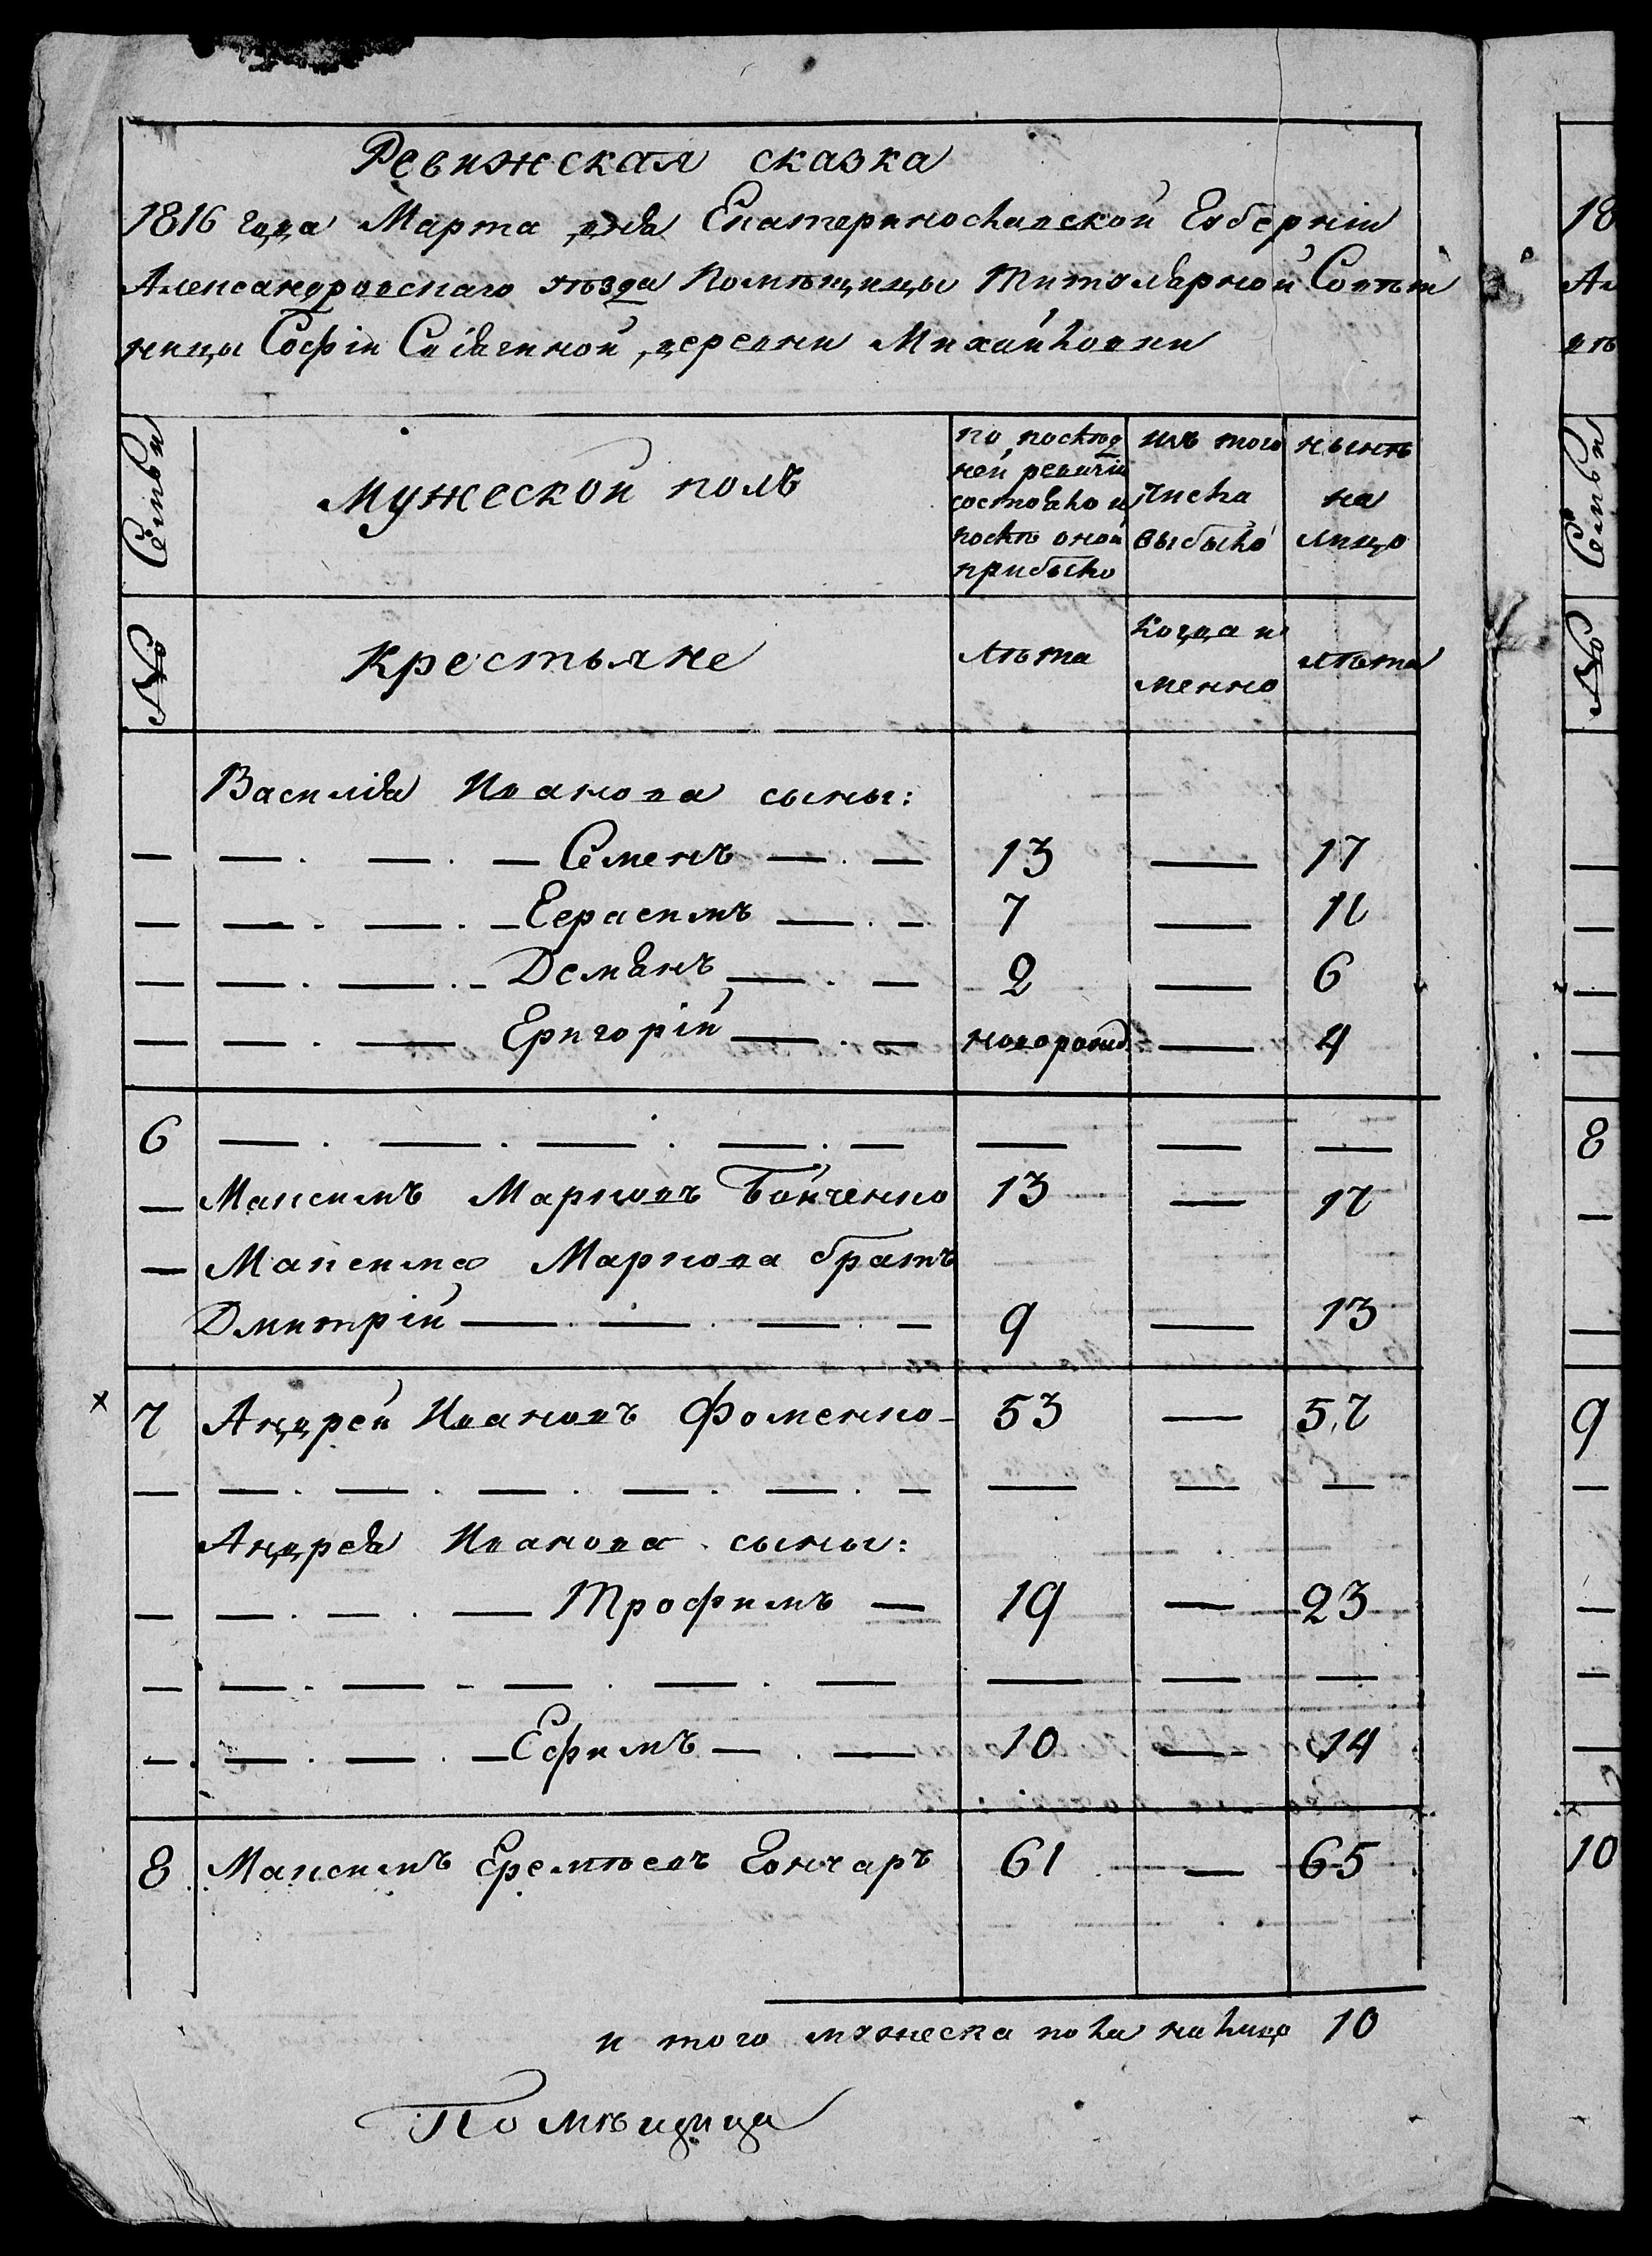 Ревижская сказка
1816 года Марта дня Екатеринославской Губерніи
Александровскаго уѣзда Помѣщицы Титулярной Совѣт
ницы Софіи деревни Михайловки
Семьи
Мужеской полъ
по послѣд
ней ревизіи
состояло и
послѣ оной
прибыло
изъ того
числа
выбыло
нынѣ
на
лицо
№
Крестьяне
лѣта
Когда и
менно
лѣта
Василія Иванова сыны:
— — . — . — Семенъ — . — 13 — 17
— — . — . — Герасимъ — . — 7 — 11
— — . — . — Демянъ — . — 2 — 6
— — . — Григорій — . — новорожд. — 4
6 — . — . — . — . — — — —
— Максимъ Марковъ Бойченко 13 — 17
— Максима Маркова братъ
Дмитрій — . — . — . — 9 — 13
х 7 Андрей Ивановъ Фоменко - 53 — 57
— — . — . — . — . — . — — — —
Андрея Иванова сыны:
— — . — . — Трофимъ — 19 — 23
— — . — - — . — . — — — —
— . — . — . — Ефимъ — . — 10 — 14
8 Максимъ Еремѣевъ Гончаръ 61 — 65
и того мужеска пола на лицо 10
Помѣщица
18
Ал
Семьи
№
8
9
10